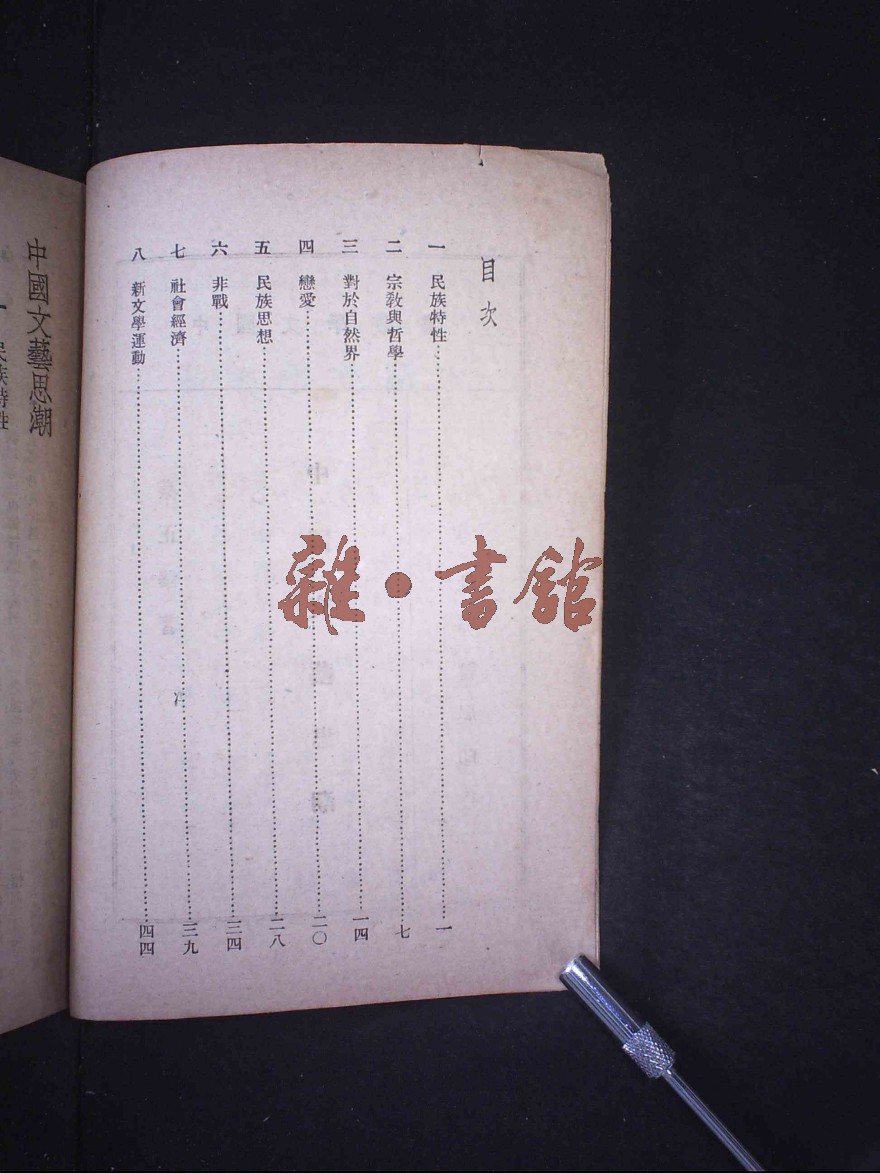 目次
一 民族特性 一
二 宗教與哲學 七
三 對於自然界 一四
四 戀愛 二〇
五 民族思想 二八
六 非戰 三四
七 社會經濟 三九
八 新文學運動 四四
中國文藝思潮
一 民族特性
雜·書館